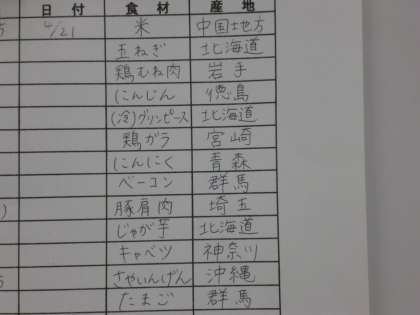 日付 食材 産地
4/21 米 中国地方
玉ねぎ 北海道
鶏むね肉 岩手
にんじん 徳島
(冷)グリンピース 北海道
鶏ガラ 宮崎
にんにく 青森
ベーコン 群馬
豚肩肉 埼玉
じゃが芋 北海道
キャベツ 神奈川
さやいんげん 沖縄
たまご 群馬